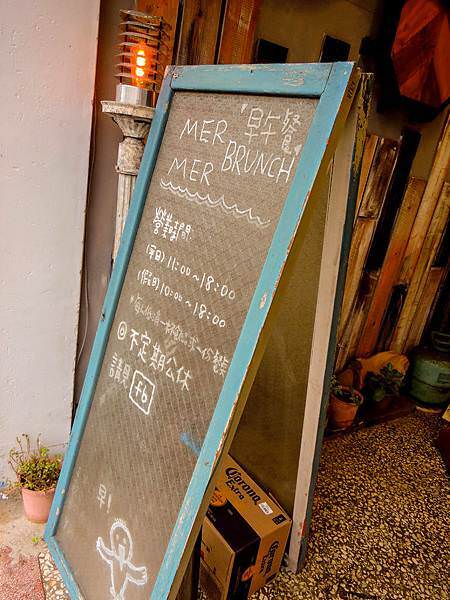 MER
MER
「早午餐」
BRUNCH
營業時間
(平日) 11:00~18:00
(假日) 10:00~18:00
不定期公休
請見 fb
早!
Corona
Extra
Corona